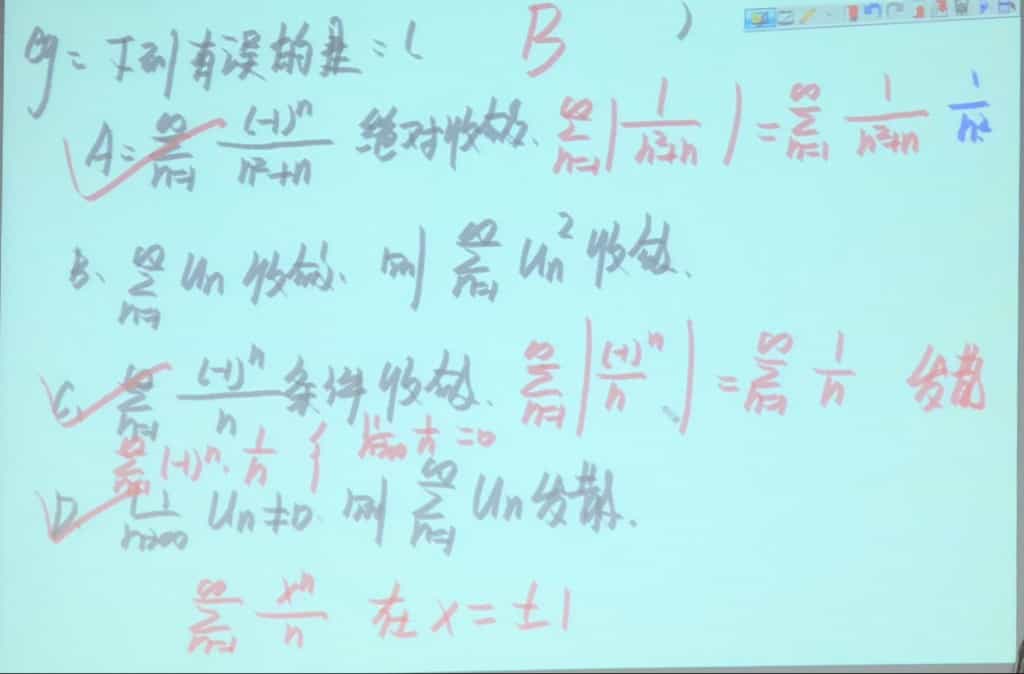 eg: 下列有误的是:( B )
A: ∑_{n=1}^{∞} (-1)^n/(n²+n) 绝对收敛. ∑_{n=1}^{∞} |1/(n²+n)| = ∑_{n=1}^{∞} 1/(n²+n) 1/n²
B. ∑_{n=1}^{∞} Un 收敛. 则 ∑_{n=1}^{∞} Un² 收敛.
C. ∑_{n=1}^{∞} (-1)^n/n 条件收敛. ∑_{n=1}^{∞} |(-1)^n/n| = ∑_{n=1}^{∞} 1/n 发散
∑_{n=1}^{∞} (-1)^n · 1/n { lim_{n→∞} 1/n = 0
D. lim_{n→∞} Un ≠ 0. 则 ∑_{n=1}^{∞} Un 发散.
∑_{n=1}^{∞} x^n/n 在 x = ±1